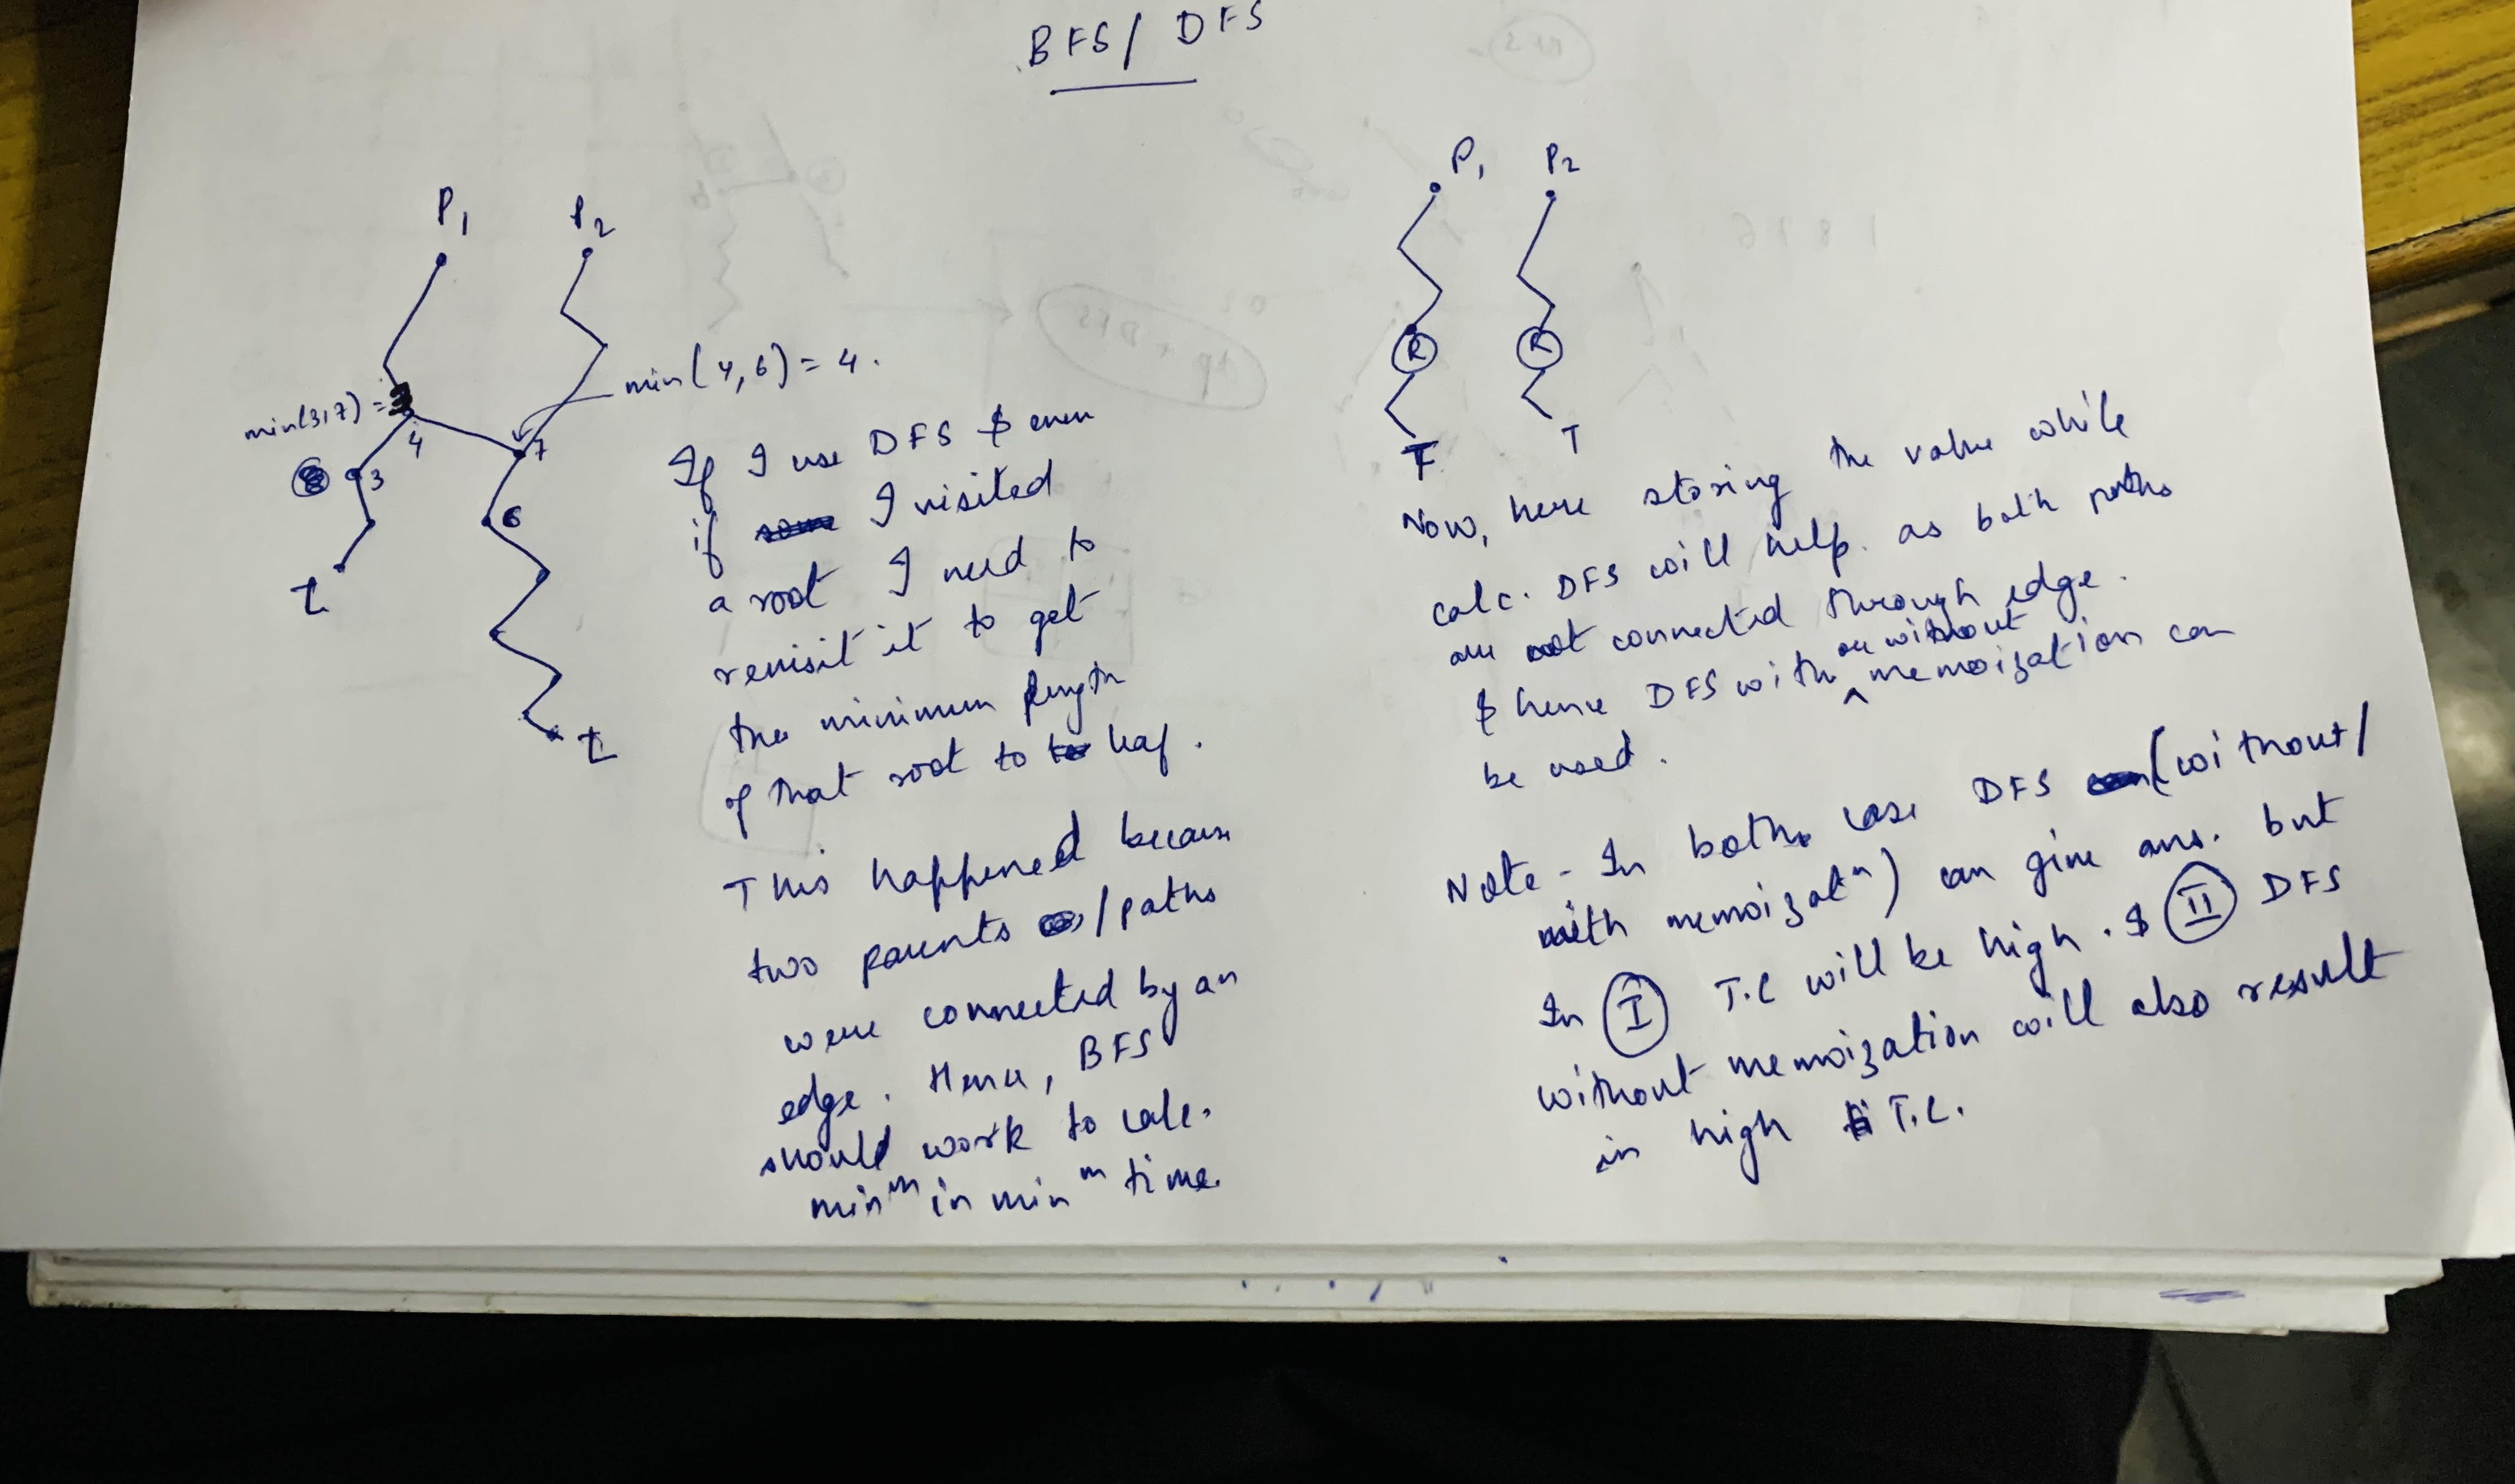 BFS/ DFS
P1 P2
min(3,7) =
4
3
7
6
L
L
min(4,6) = 4.
If I use DFS & even
if I visited
a root I need to
revisit it to get
the minimum length
of that root to leaf.
This happened because
two parents /paths
were connected by an
edge. Hence, BFS
should work to calc.
minᵐ in minᵐ time.
P1 P2
R R
T
Now, here storing the value while
calc. DFS will help. as both paths
are not connected through edge.
& hence DFS with or without memoization can
be used.
Note - In both case DFS (without/
with memoizatⁿ) can give ans. but
In I T.C will be high. & II DFS
without memoization will also result
in high T.C.